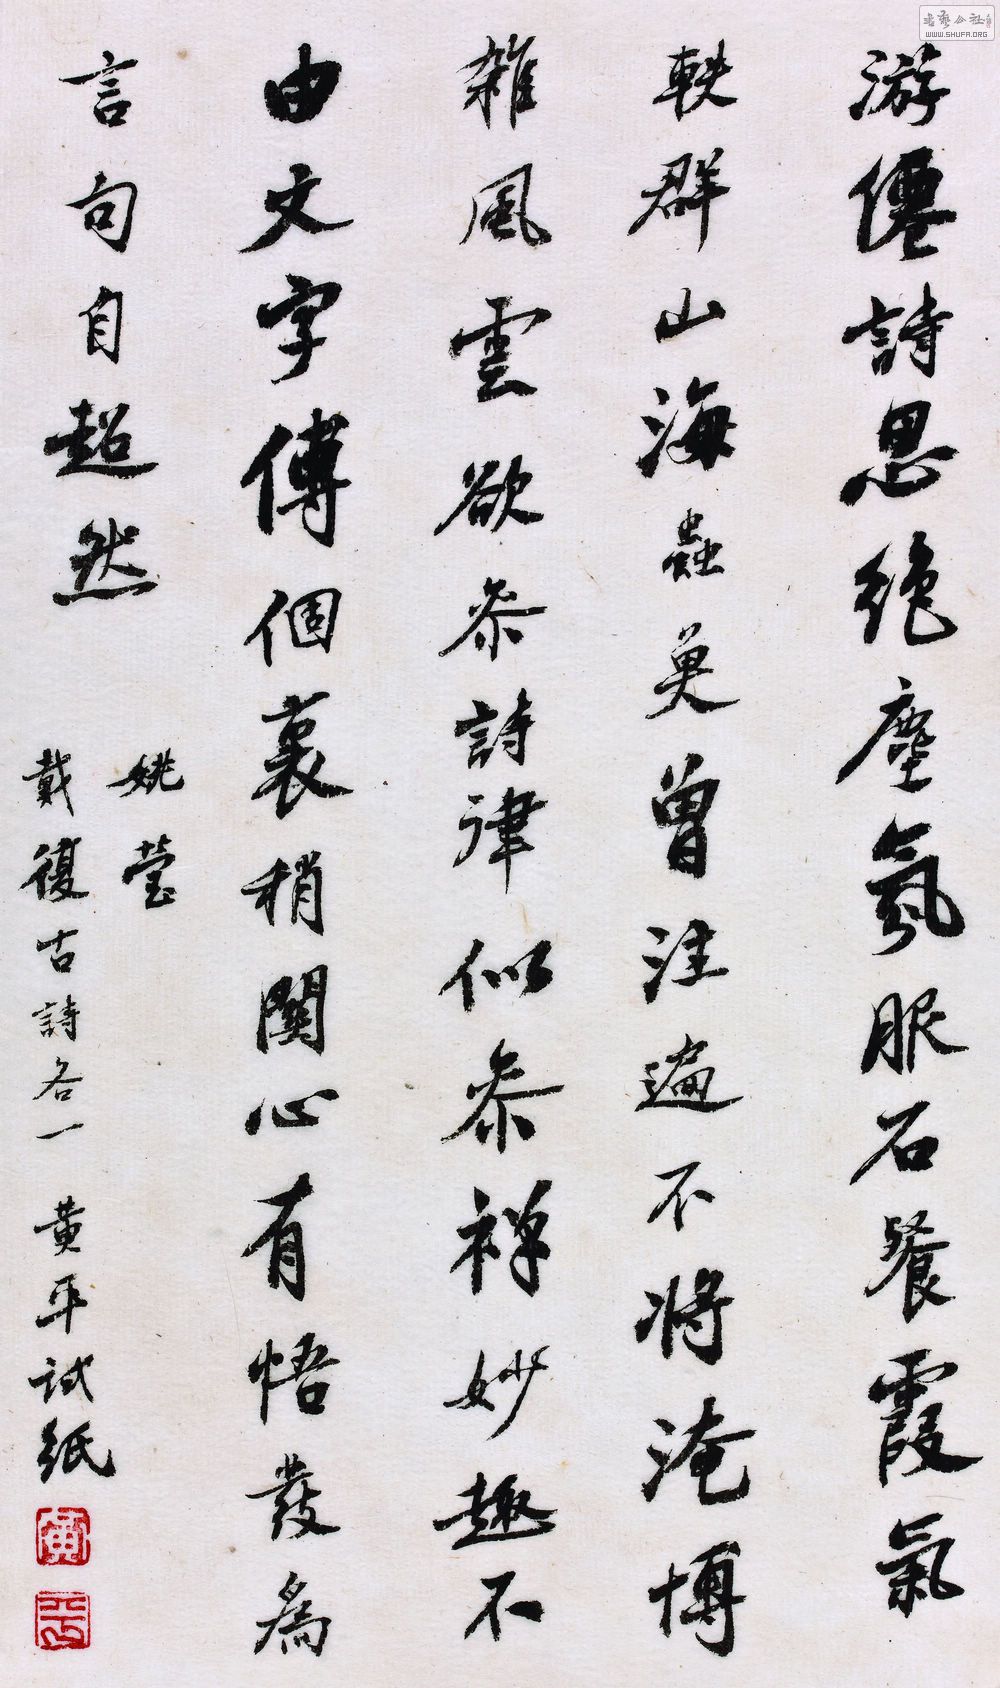 游僊詩思絶塵氛服石餐霞氣
軼群山海蟲魚曾注遍不將淹博
雜風雲欲参詩律似参禅妙趣不
由文字傳個裏稍關心有悟發爲
言句自超然
姚瑩
戴復古詩各一 黄平試紙
黄
平
書藝公社
WWW.SHUFA.ORG